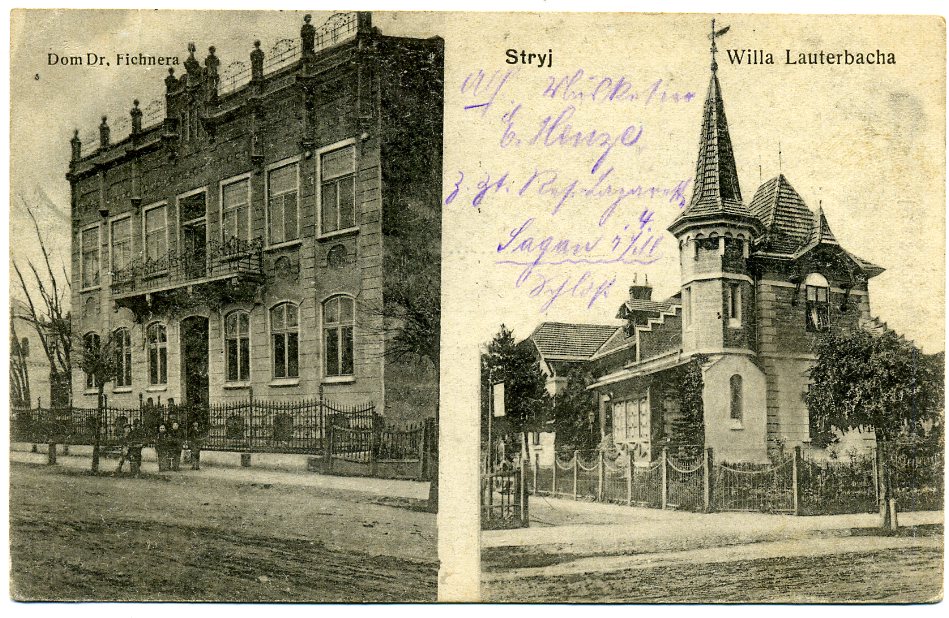 Dom Dr. Fichnera
Stryj
Willa Lauterbacha
Musketier
E. Henze
z. Zt. Res. Lazarett
Sagan
Schloß